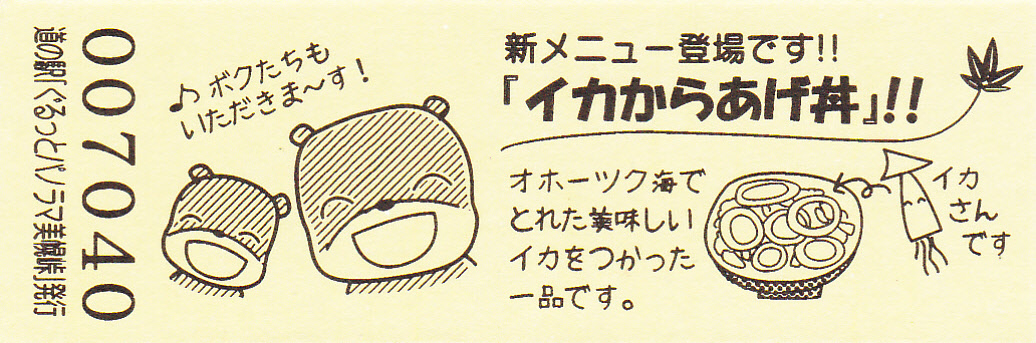 道の駅「ぐるっとパノラマ美幌峠」発行
007040
♪ボクたちも
いただきま〜す!
新メニュー登場です!!
『イカからあげ丼』!!
オホーツク海で
とれた美味しい
イカをつかった
一品です。
イカ
さん
です